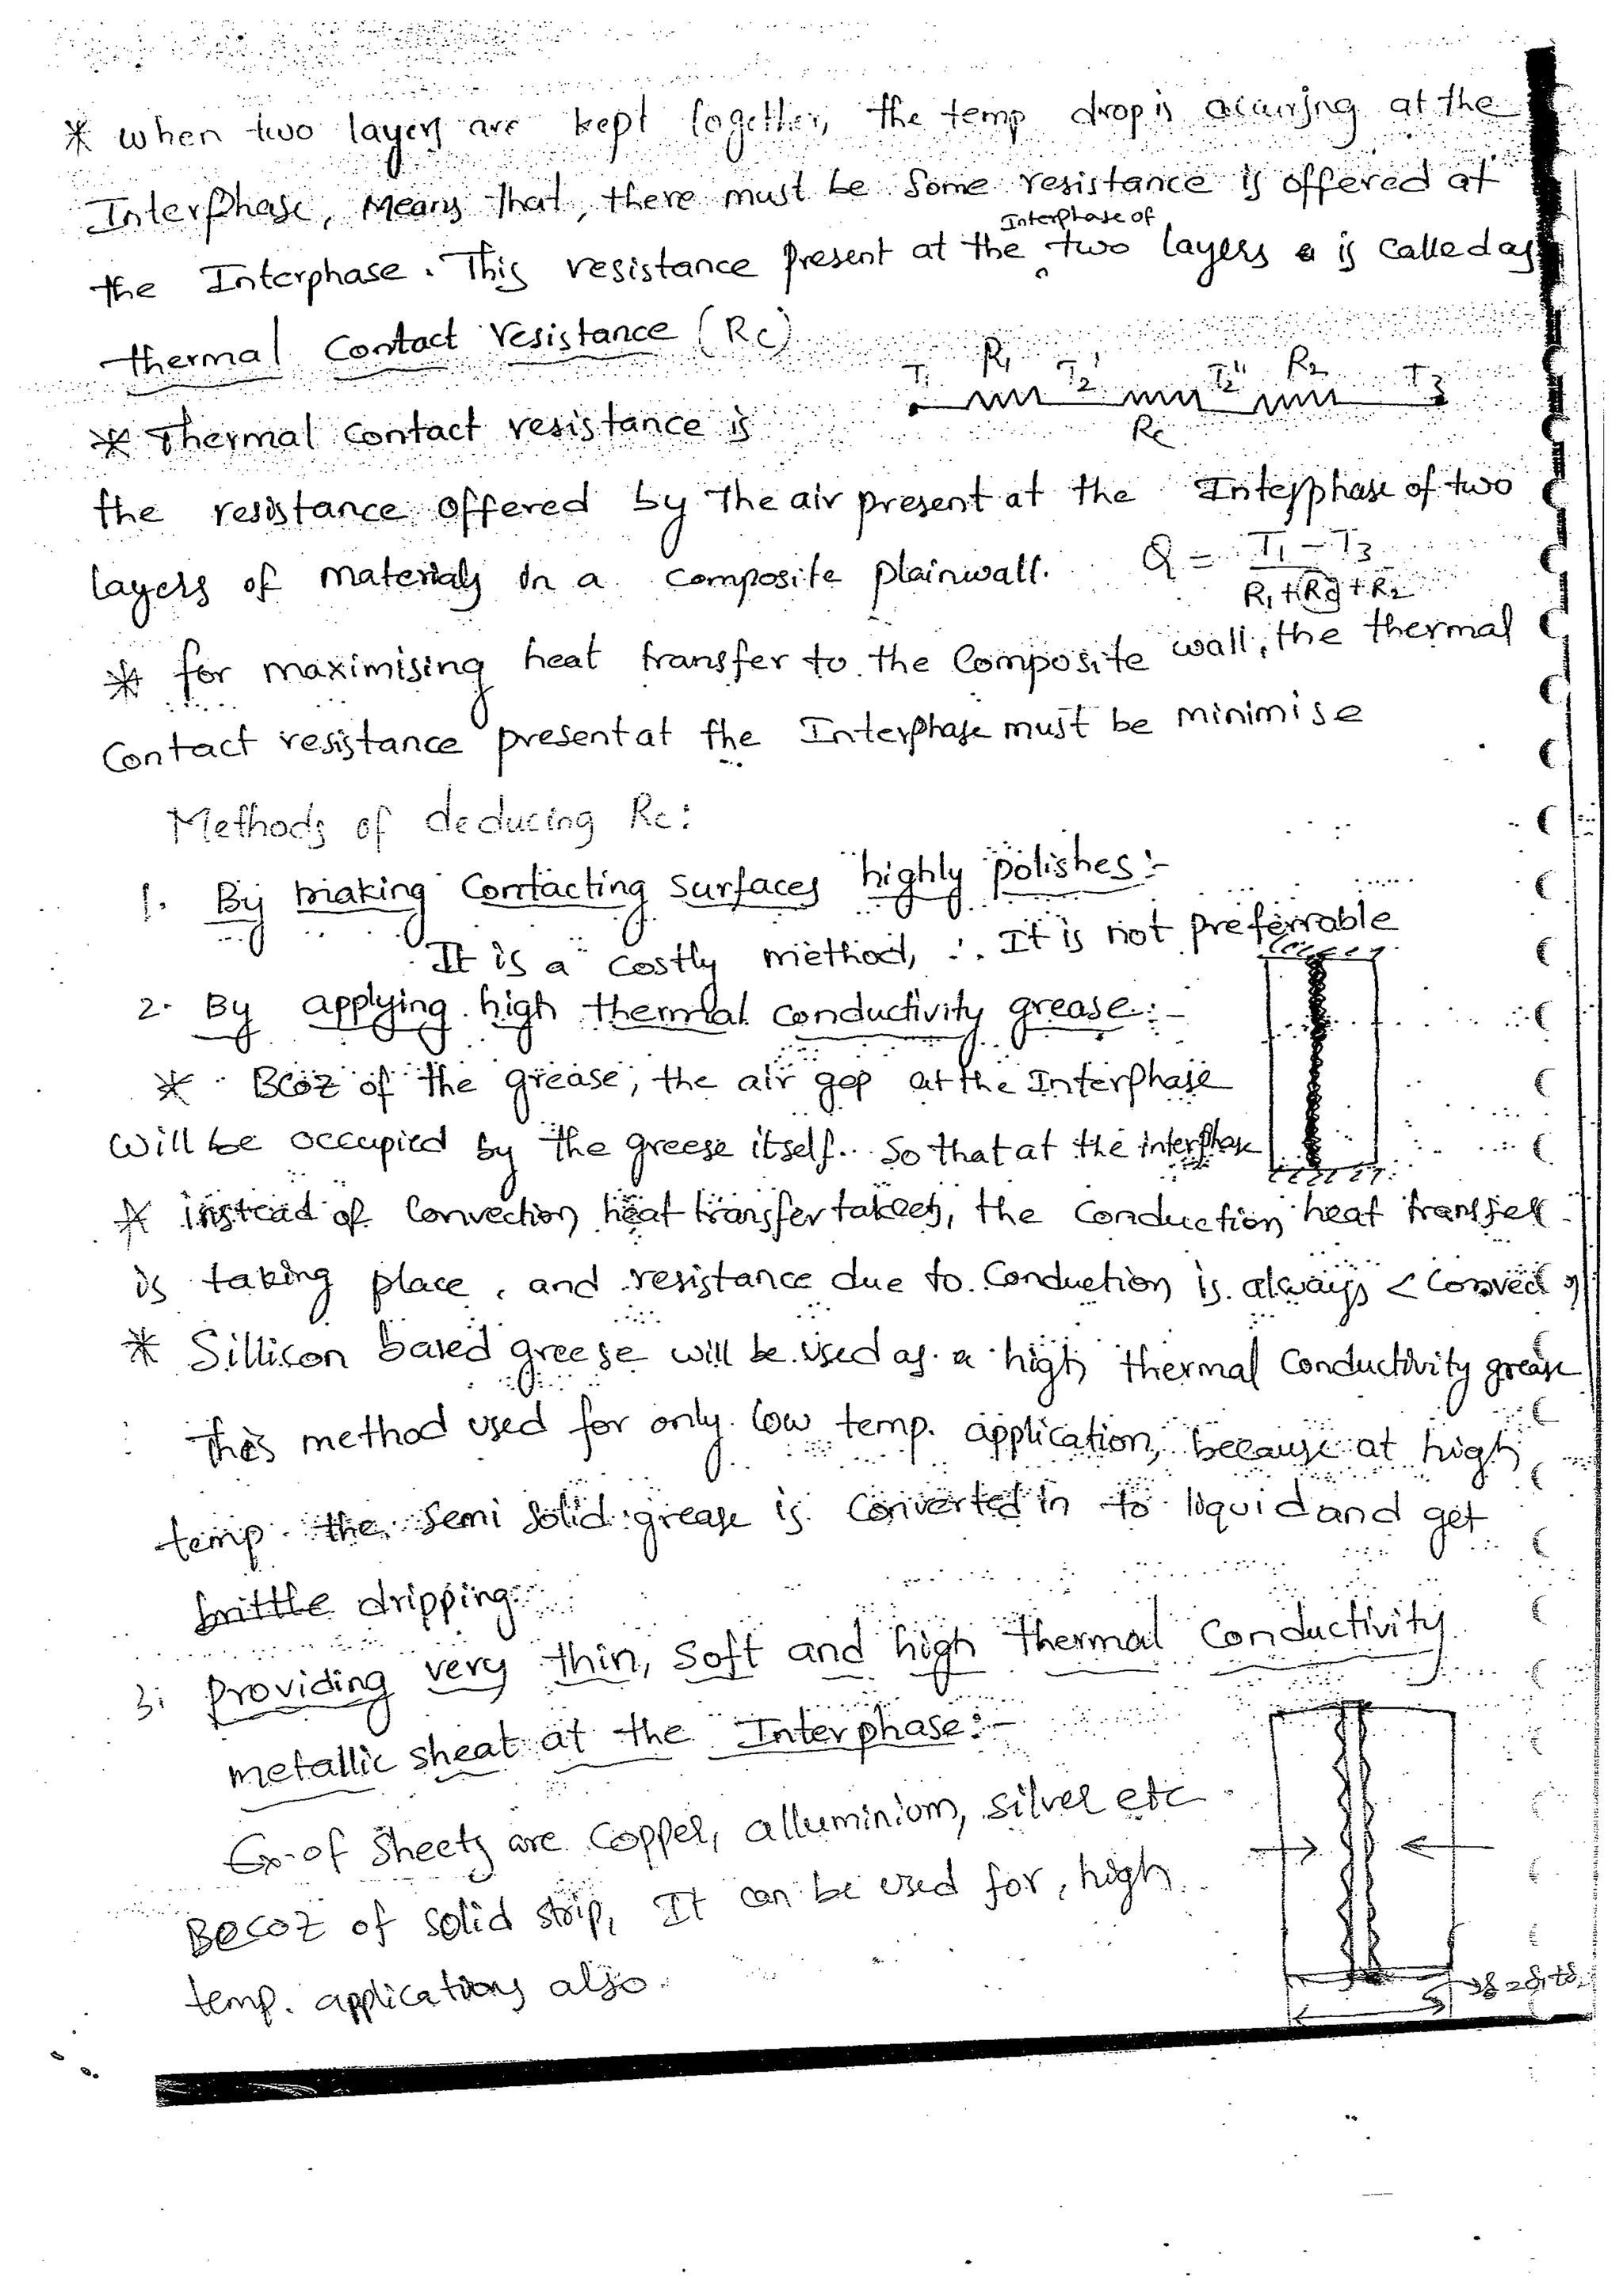 * when two layers are kept together, the temp drop is occurring at the
Interphase, Means that, there must be some resistance is offered at
Interphase of
the Interphase. This resistance present at the ^ two layers is called as
thermal Contact resistance (Rc)
T1 R1 T2' T2'' R2 T3
Rc
* Thermal contact resistance is
the resistance offered by The air present at the Interphase of two
layers of materials in a composite plainwall. Q = T1 - T3 / R1 + Rc + R2
* for maximising heat transfer to the Composite wall, the thermal
Contact resistance present at the Interphase must be minimise
Methods of deducing Rc:
1. By making Contacting surfaces highly polishes:-
It is a costly method, ∴ It is not preferrable
2. By applying high thermal conductivity grease:-
* Bcoz of the grease, the air gap at the Interphase
will be occupied by the greese itself. So that at the interphase
* instead of Convection heat transfer takes, the Conduction heat transfer
is taking place, and resistance due to Conduction is always <
* Sillicon based greese will be used as a high thermal Conductivity grease
This method used for only low temp. application, because at high
temp. the semi solid grease is Converted in to liquid and get
brittle dripping.
3. Providing very thin, soft and high thermal Conductivity
metallic sheat at the Interphase:-
Ex-of Sheets are Copper, alluminiom, silver etc
Becoz of solid strip, It can be used for, high
temp. applications also.